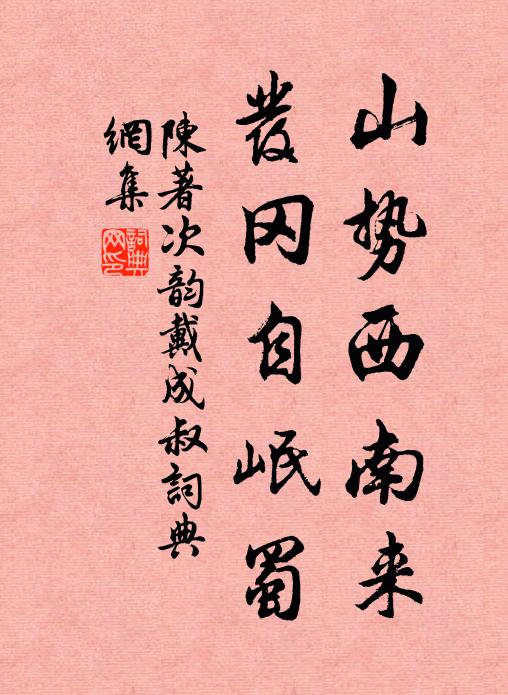 山势西南来
發冈自岷蜀
陳著次韵戴成叔詞典
網集
詞典
网印